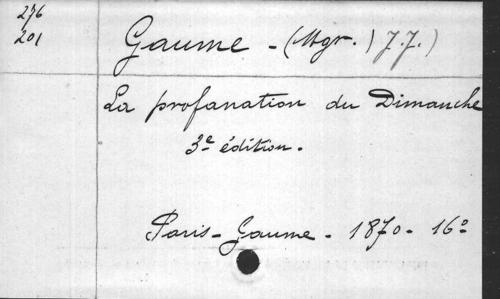 276
201
Gaume - (Mgr.) J. J.)
La profanation du Dimanche
3e édition.
Paris - Gaume - 1870 - 16o